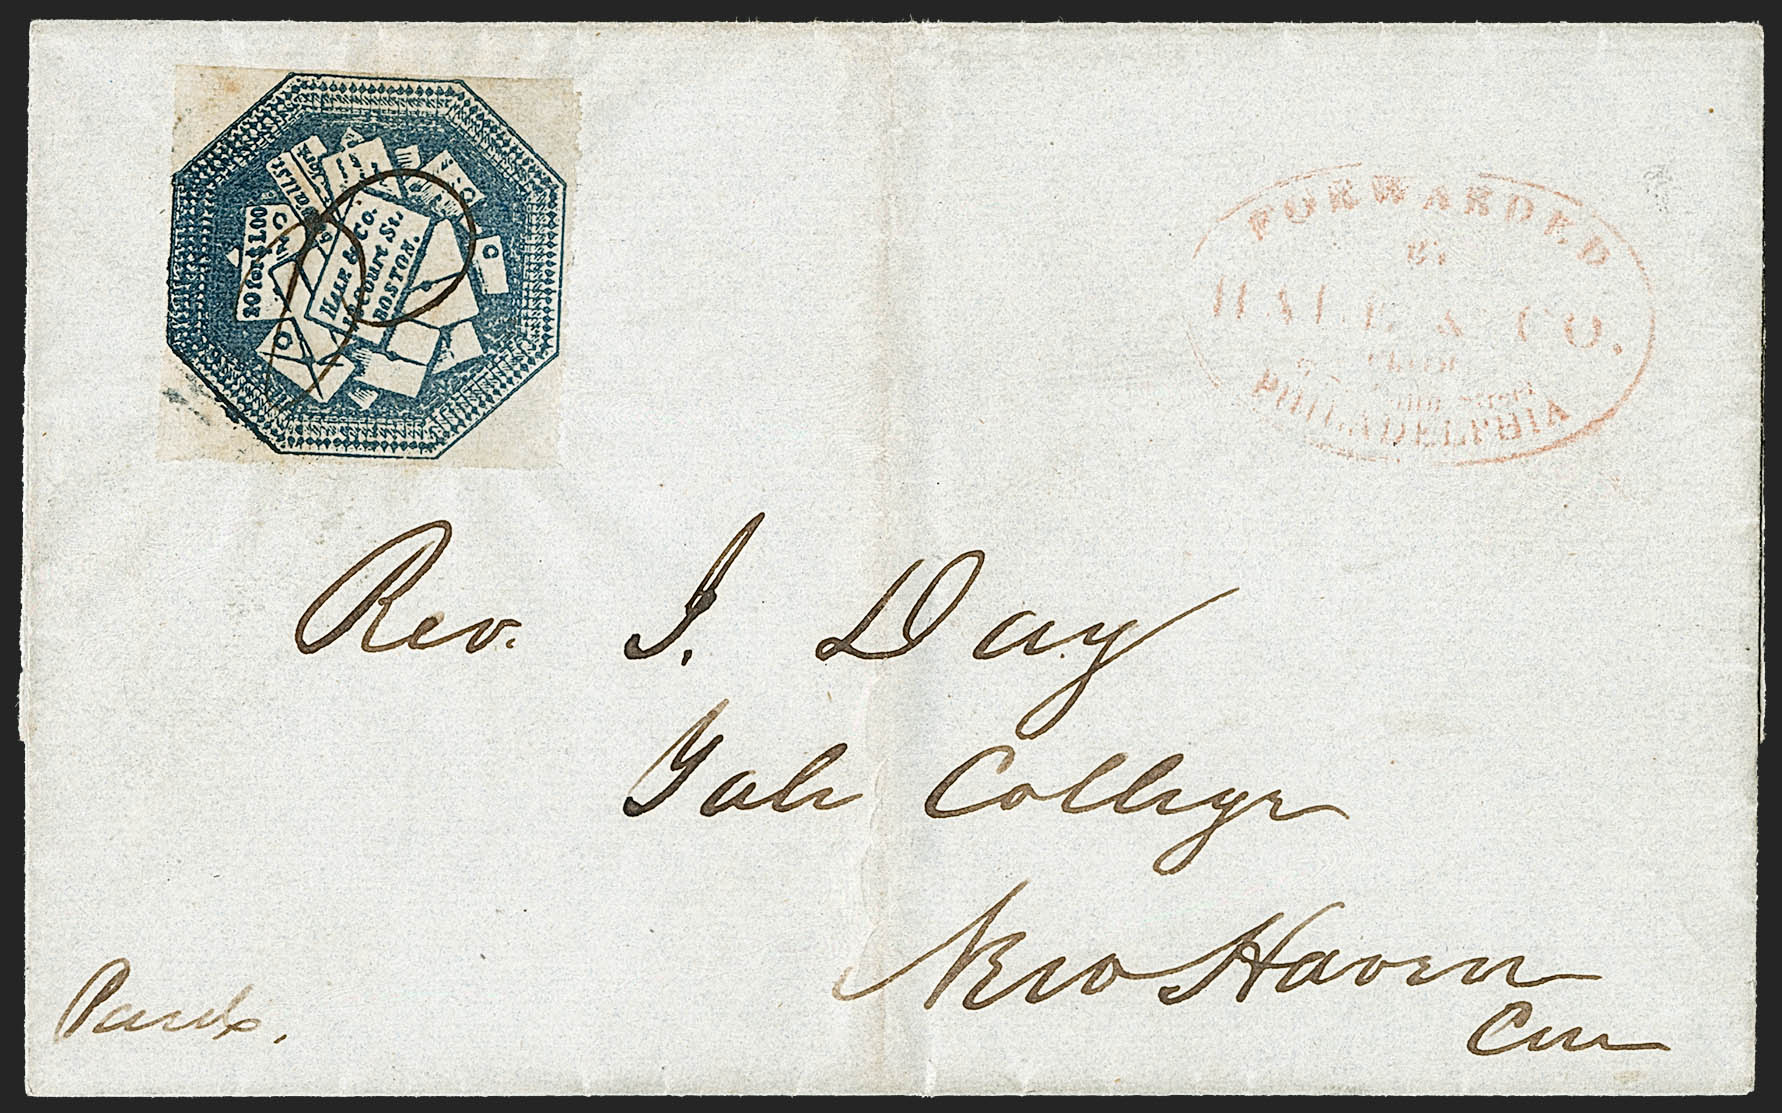 20 for $1.00
HALE & CO.
Court St.,
BOSTON.
FORWARDED
BY
HALE & CO.
PHILADELPHIA
Rev. J. Day
Yale College
New Haven
Cnn
Paid.